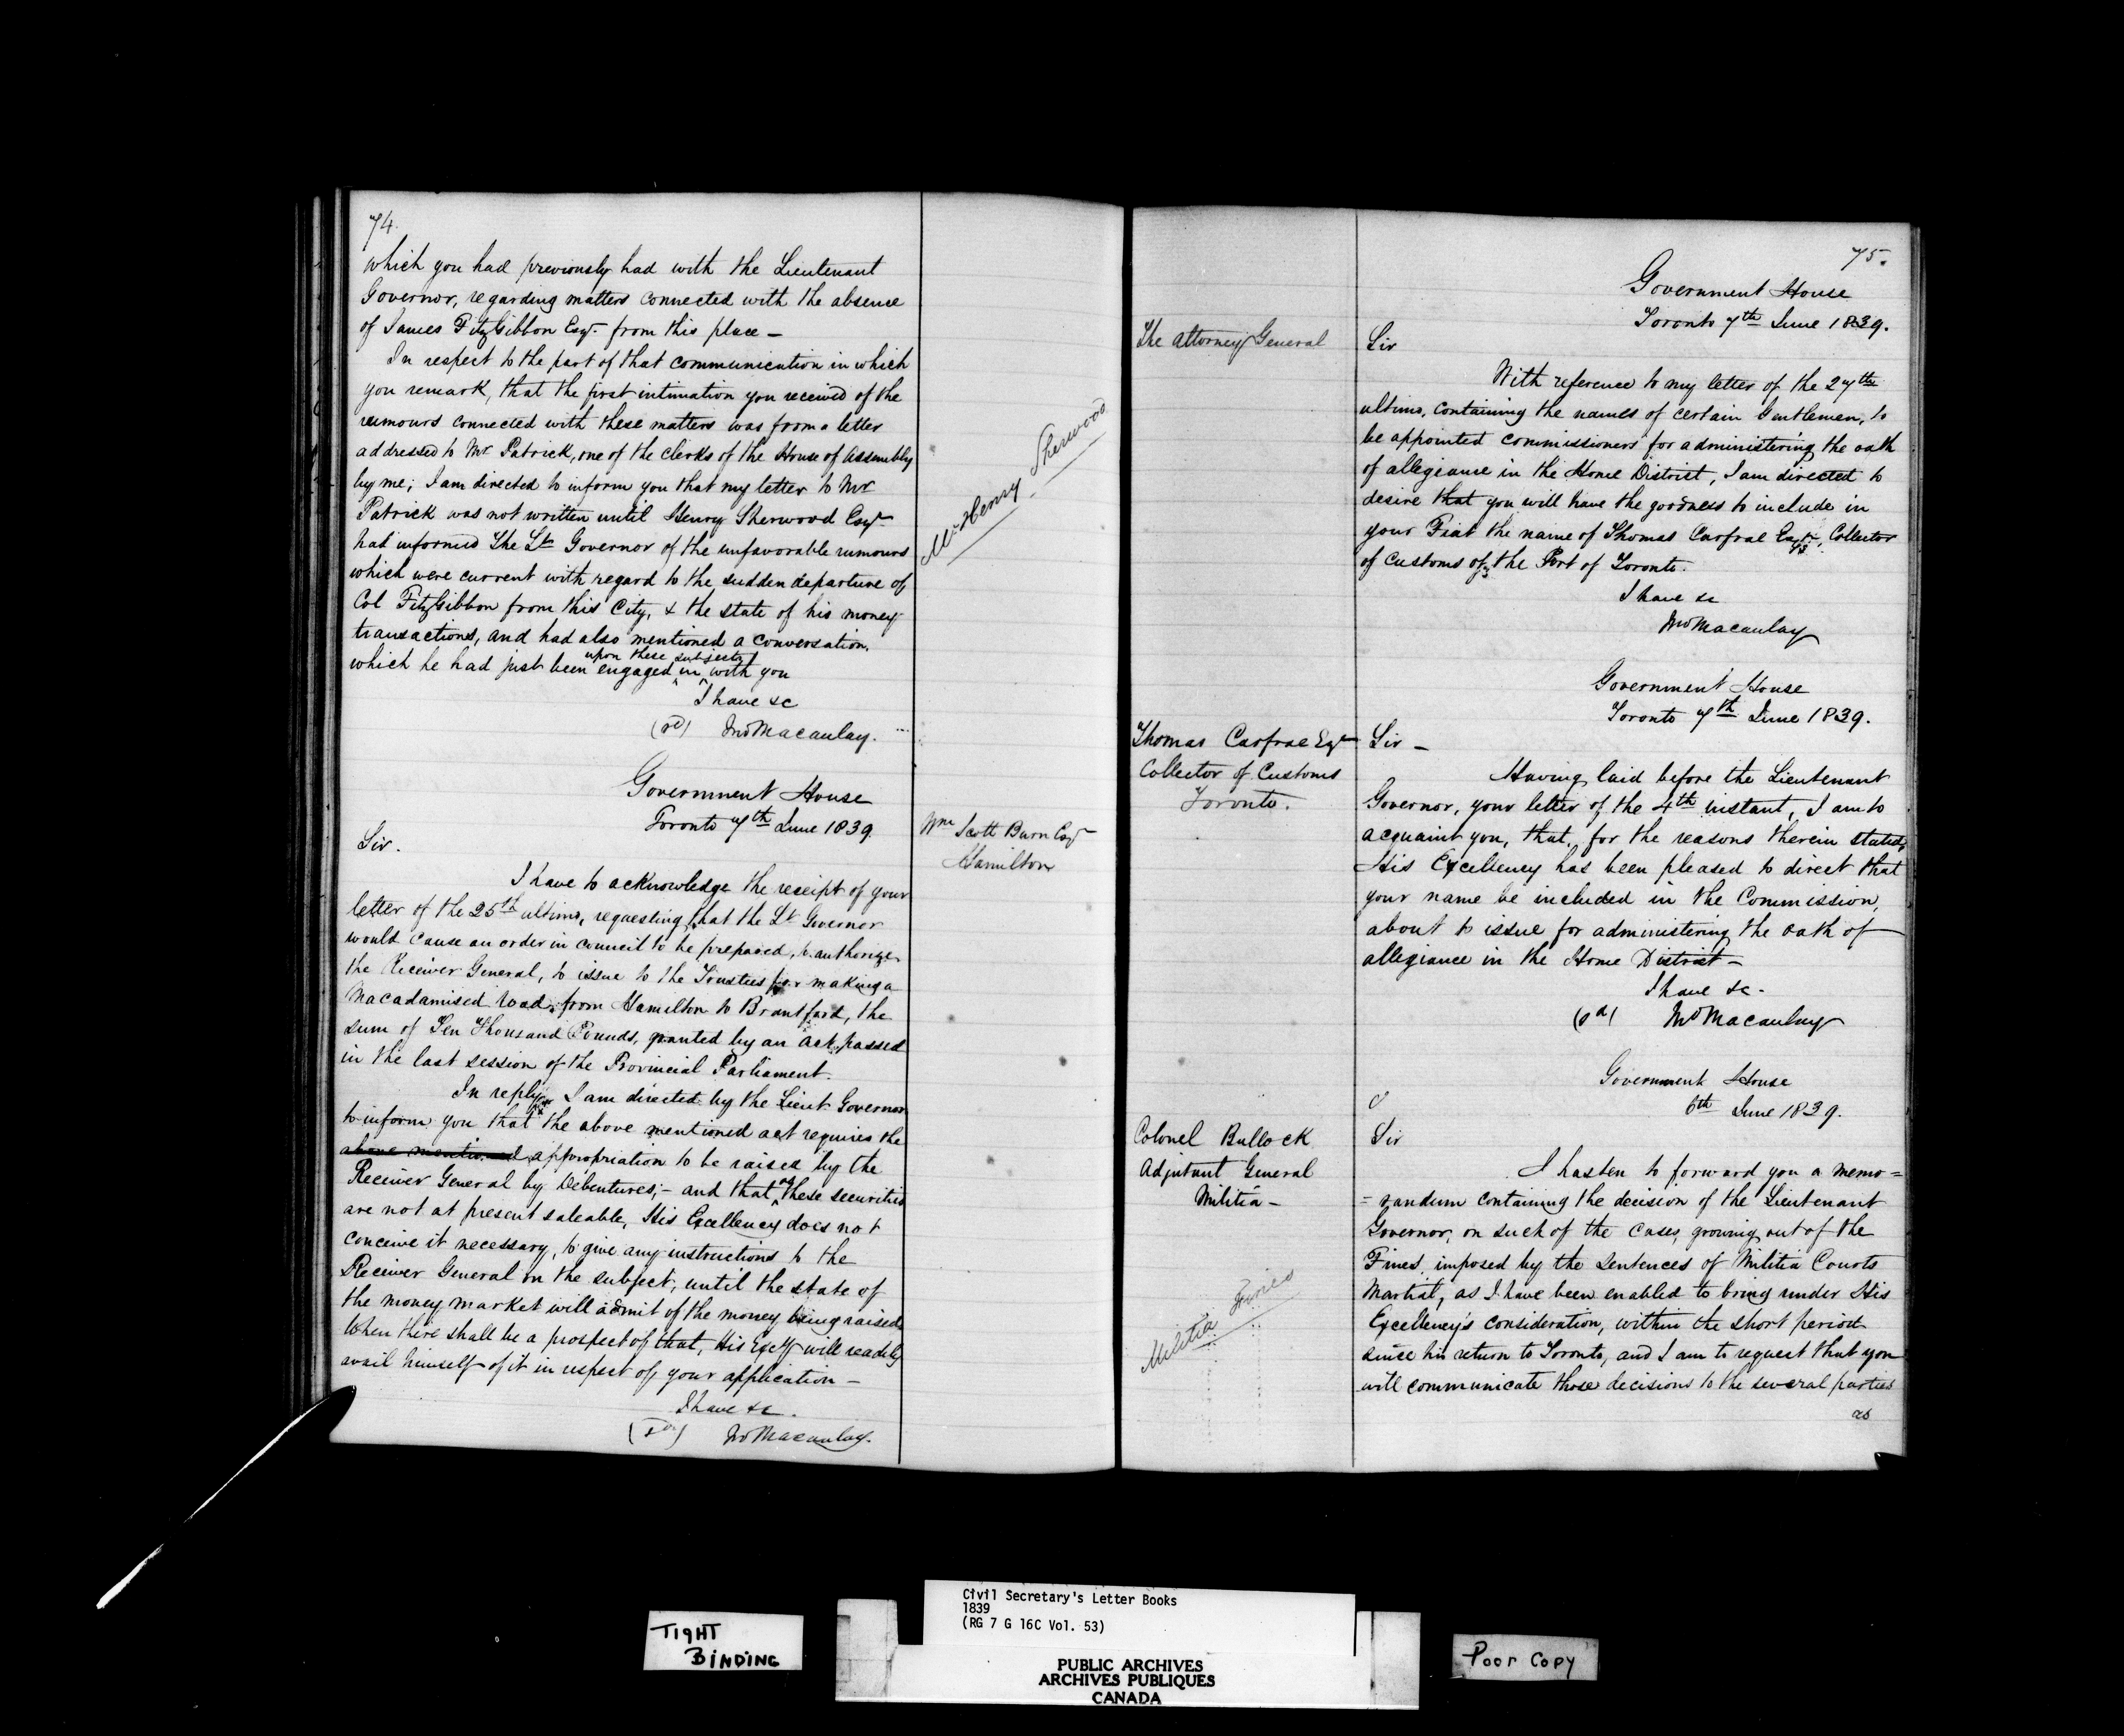 74.
which you had previously had with the Lieutenant
Governor, regarding matters connected with the absence
of James FitzGibbon Esqr. from this place —
In respect to the part of that communication in which
you remark, that the first intimation you received of the
rumours connected with these matters was from a letter
addressed to Mr Patrick, one of the Clerks of the House of Assembly
by me; I am directed to inform you that my letter to Mr
Patrick was not written until Henry Sherwood Esqr
had informed The Lt Governor of the unfavorable rumours
which were current with regard to the sudden departure of
Col FitzGibbon from this City, & the state of his money
transactions, and had also mentioned a conversation,
upon these subjects
which he had just been engaged in with you
I have &c
(sd) Jno Macaulay.
Mr Henry Sherwood
Government House
Toronto 7th June 1839.
Wm Scott Burn Esqr
Hamilton
Sir.
I have to acknowledge the receipt of your
letter of the 25th ultimo, requesting that the Lt Governor
would cause an order in council to be prepared, to authorize
the Receiver General, to issue to the Trustees for making a
Macadamised road, from Hamilton to Brantford, the
sum of Ten Thousand Pounds, granted by an act, passed
in the last session of the Provincial Parliament.
In reply I am directed by the Lieut Governor
to inform you that the above mentioned act requires the
above mentioned appropriation to be raised by the
Receiver General by Debentures; – and that as these securities
are not at present saleable, His Excellency does not
conceive it necessary, to give any instructions to the
Receiver General on the subject, until the state of
the money market will admit of the money being raised.
When there shall be a prospect of that, His Excelly will readily
avail himself of it in respect of your application —
I have &c.
(sd) Jno Macaulay.
75.
Government House
Toronto 7th June 1839.
The Attorney General
Sir
With reference to my letter of the 27th
ultimo, containing the names of certain Gentlemen, to
be appointed commissioners for administering the oath
of allegiance in the Home District, I am directed to
desire that you will have the goodness to include in
your Fiat the name of Thomas Carfrae Esqr, Collector
of Customs of the Port of Toronto.
I have &c
Jno Macaulay
Government House
Toronto 7th June 1839.
Thomas Carfrae Esqr
Collector of Customs
Toronto.
Sir —
Having laid before the Lieutenant
Governor, your letter of the 4th instant, I am to
acquaint you, that, for the reasons therein stated,
His Excellency has been pleased to direct that
your name be included in the Commission,
about to issue for administering the oath of
allegiance in the Home District —
I have &c.
(sd) Jno Macaulay
Government House
6th June 1839.
Colonel Bullock
Adjutant General
Militia —
Sir
I hasten to forward you a memo=
=randum containing the decision of the Lieutenant
Governor, on such of the Cases, growing out of the
Fines, imposed by the Sentences of Militia Courts
Martial, as I have been enabled to bring under His
Excellency's consideration, within the short period
since his return to Toronto, and I am to request that you
will communicate those decisions to the several parties
as
Militia Fines
TIGHT
BINDING
Civil Secretary's Letter Books
1839
(RG 7 G 16C Vol. 53)
PUBLIC ARCHIVES
ARCHIVES PUBLIQUES
CANADA
Poor Copy